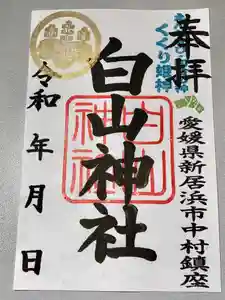 奉拝
くくり姫神
愛媛県新居浜市中村鎮座
白山神社
白山
神社
令和 年 月 日